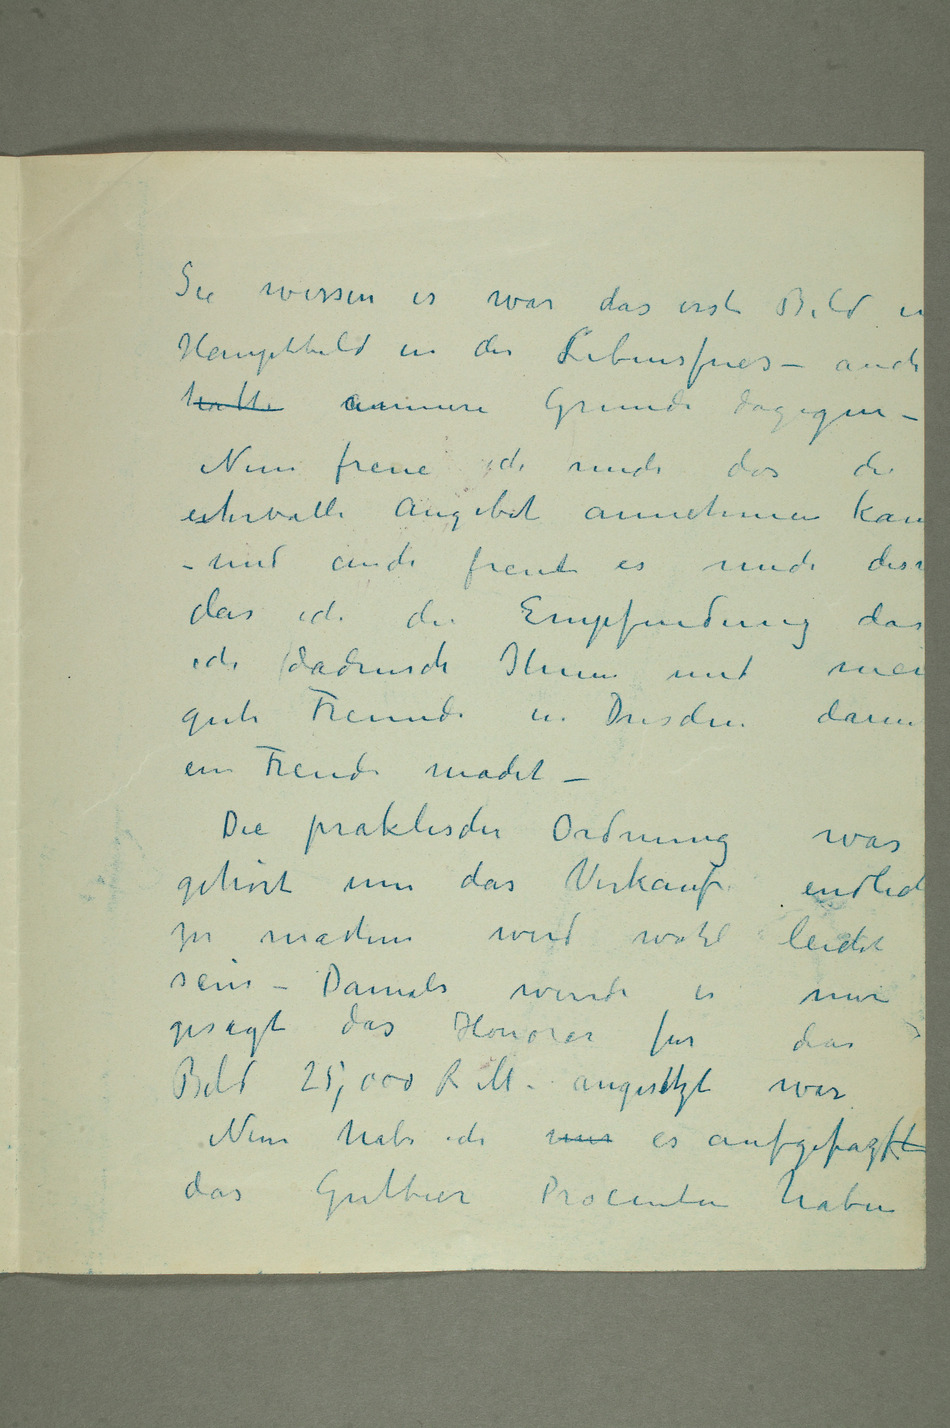 Sie wissen es war das erste Bild
Hauptbild in der Lebensfries – auch
hatte annere Grunde dagegen –
Nun freue ich mich das die
ehrvolle Angebot annehmen kan
– und auch freut es mich
das ich die Empfindung das
ich dadursch Ihnen und mei
gute Freunde in Dresden damit
ein Freude macht –
Die praktische Ordnung was
gehört um das Verkauf endlich
zu machen wird wohl leicht
sein – Damals wurde es mir
gesagt das Honorar für das
Bild 25,000 R.M. angesetzt war
Nun habe ich nur es aufgefaszt
das Gutbier Procenten haben